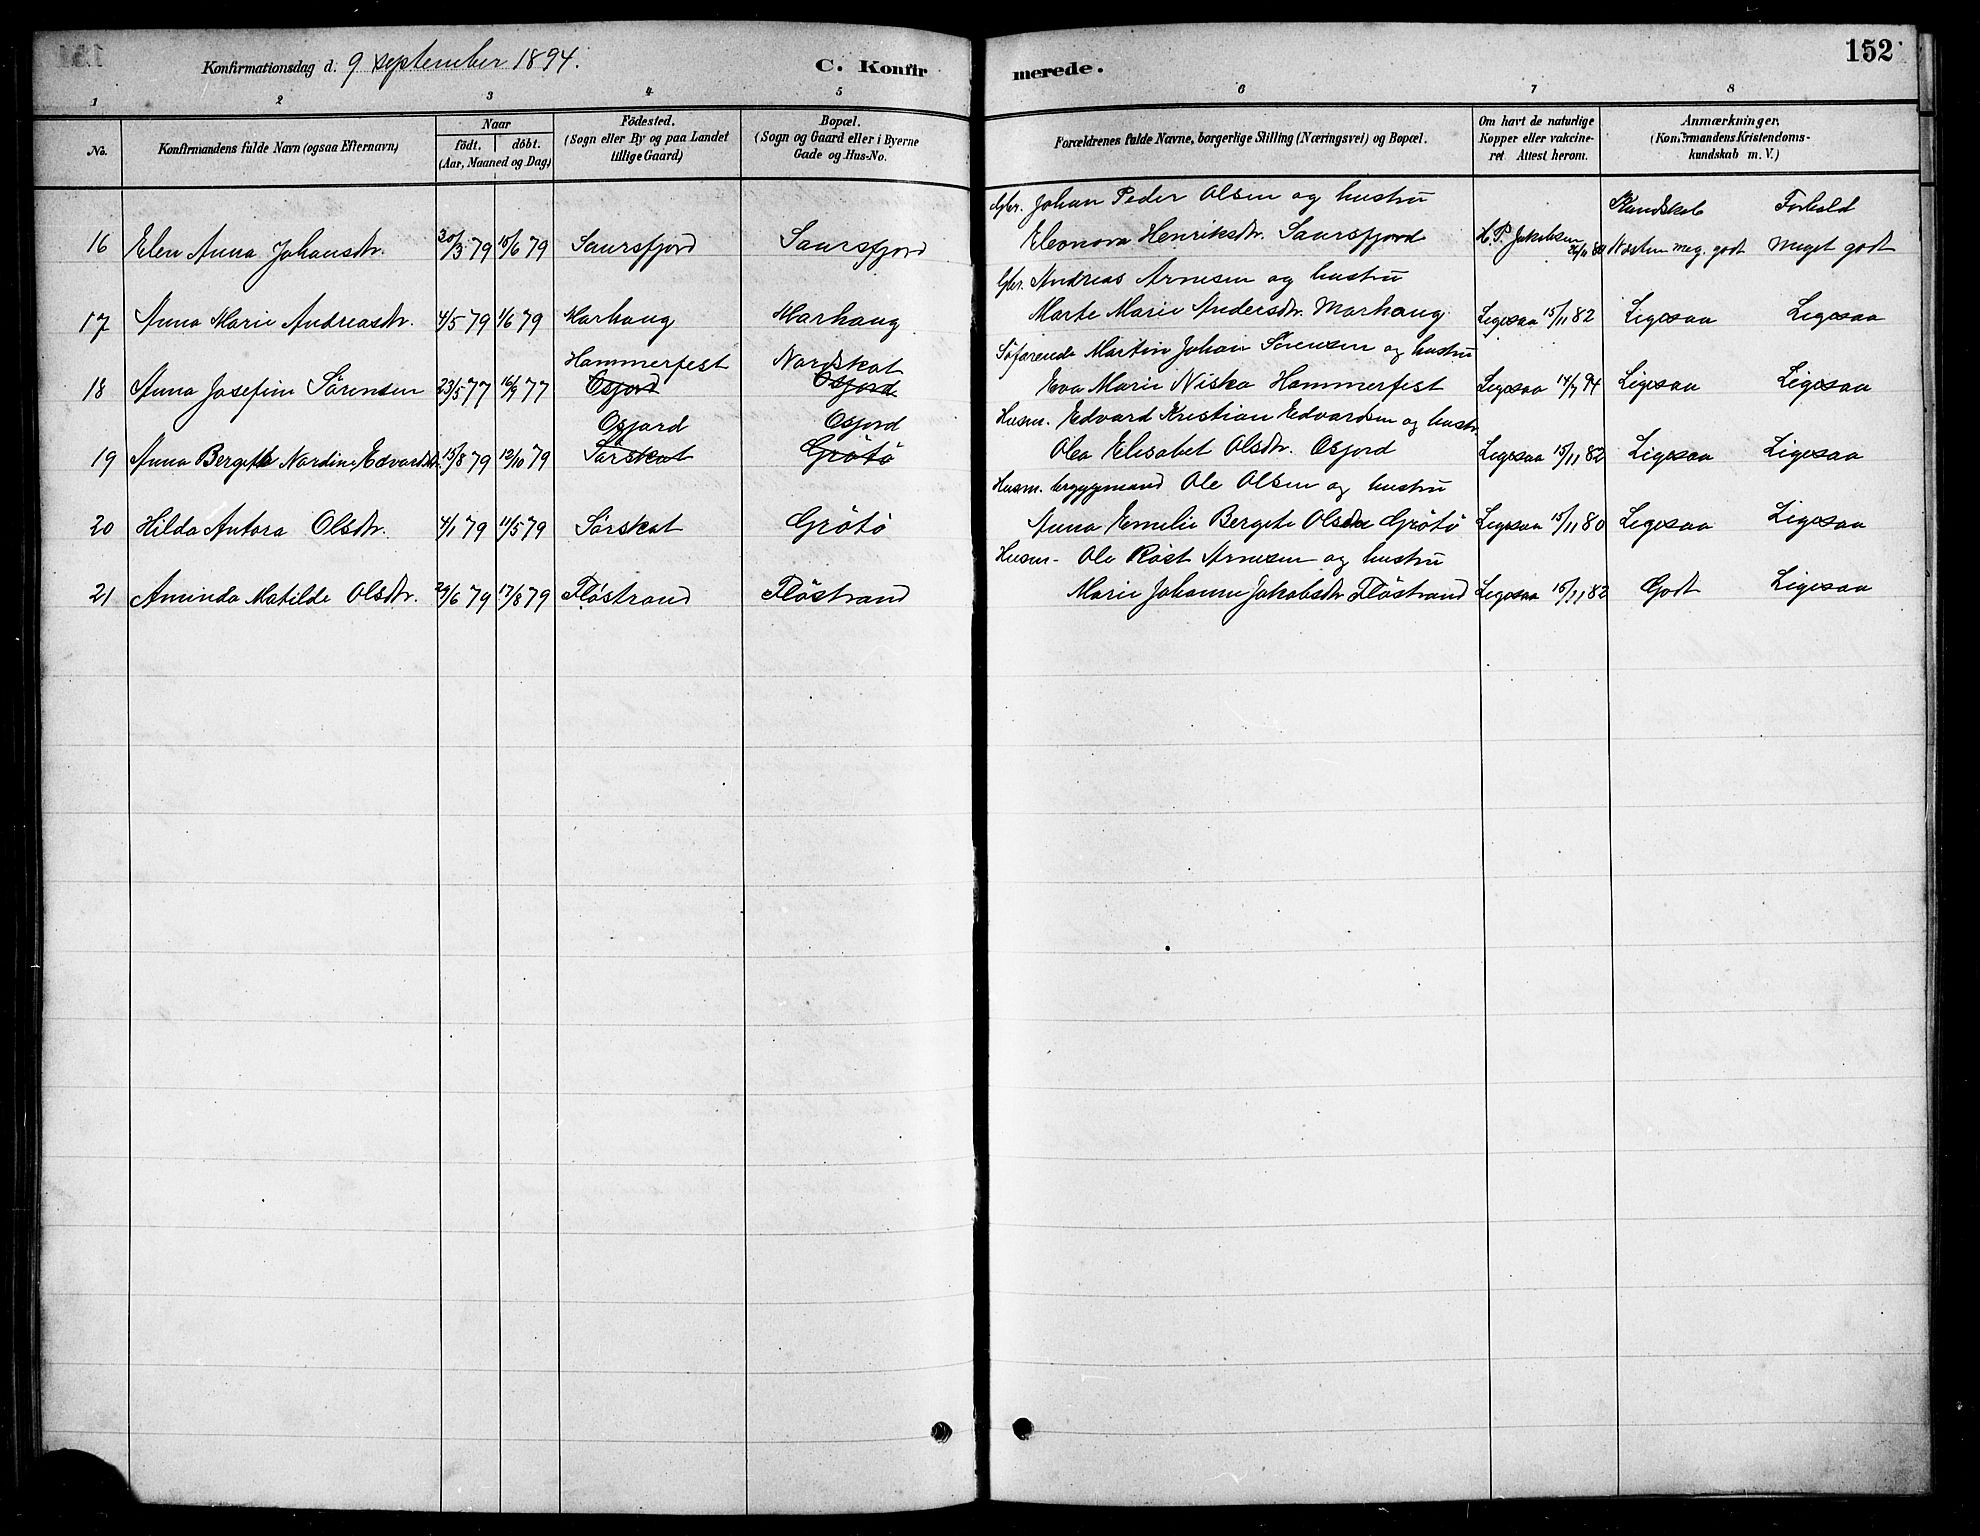 Konfirmationsdag d. 9 september 1894.
C. Konfirmerede.
152
1 2 3 4 5 6 7 8
No.
Konfirmandens fulde Navn (ogsaa Efternavn)
Naar
födt. döbt.
(Aar, Maaned og Dag)
Födested.
(Sogn eller By og paa Landet
tillige Gaard)
Bopæl.
(Sogn og Gaard eller i Byerne
Gade og Hus-No.
Forældrenes fulde Navne, borgerlige Stilling (Næringsvei) og Bopæl.
Om havt de naturlige
Kopper eller vakcine-
ret Attest herom.
Anmærkninger.
(Konfirmandens Kristendoms-
kundskab m. V.)
Gbr. Johan Peder Olsen og hustru Kundskab Forhold
16 Elen Anna Johansdtr. 30/3 79 15/6 79 Saursfjord Saursfjord Eleonora Henriksdtr. Saursfjord H. P. Jakobsen Næsten meg. godt Meget godt
Gbr. Andreas Arnesen og hustru
17 Anna Marie Andreasdtr. 4/5 79 1/6 79 Marhaug Marhaug Marte Marie Andersdtr. Marhaug Ligesaa 15/11 82 Ligesaa Ligesaa
Hammerfest Nordskot Söfarende Martin Johan Sörensen og hustru
18 Anna Josefine Sörensen 23/5 77 16/9 77 Osfjord Osfjord Eva Marie Niska Hammerfest Ligesaa 14/7 94 Ligesaa Ligesaa
Osfjord Osfjord Husm. Edvard Kristian Edvardsen og hustr.
19 Anna Bergitte Nordine Edvardsdtr. 15/8 79 12/10 79 Sörskot Grötö Olea Elisabet Olsdtr. Osfjord Ligesaa 15/11 82 Ligesaa Ligesaa
Husm. Ole Olsen og hustru
20 Hilda Antora Olsdtr. 4/1 79 11/5 79 Sörskot Grötö Anna Emelie Bergete Olsdtr Grötö Ligesaa 15/11 80 Ligesaa Ligesaa
Husm. Ole Röst Arnesen og hustru
21 Aminda Matilde Olsdtr. 29/6 79 17/8 79 Flöstrand Flöstrand Marie Johanne Jakobsdtr Flöstrand Ligesaa 15/11 82 Godt Ligesaa